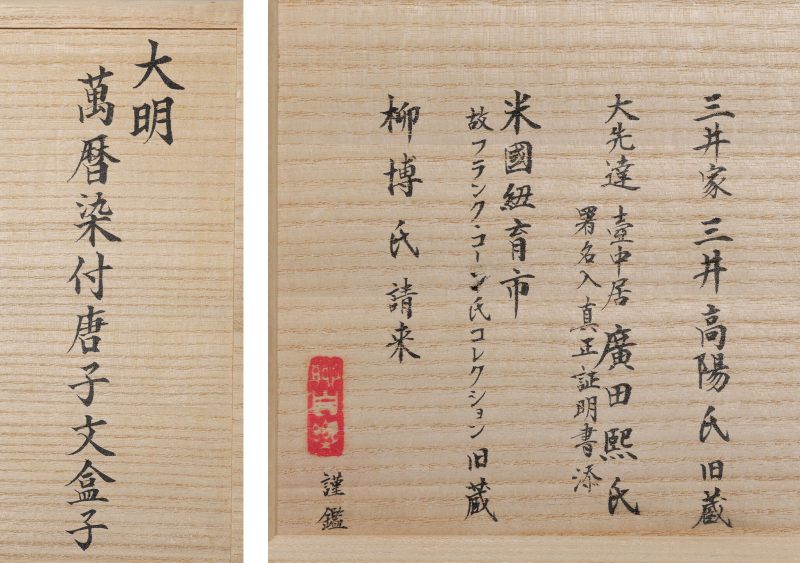 大明
萬暦染付唐子文盒子
三井家 三井高陽氏旧蔵
大先達 壷中居 廣田熙氏
署名入真正証明書添
米國紐育市
故フランク・コーン氏コレクション旧蔵
柳博氏請来
謹鑑